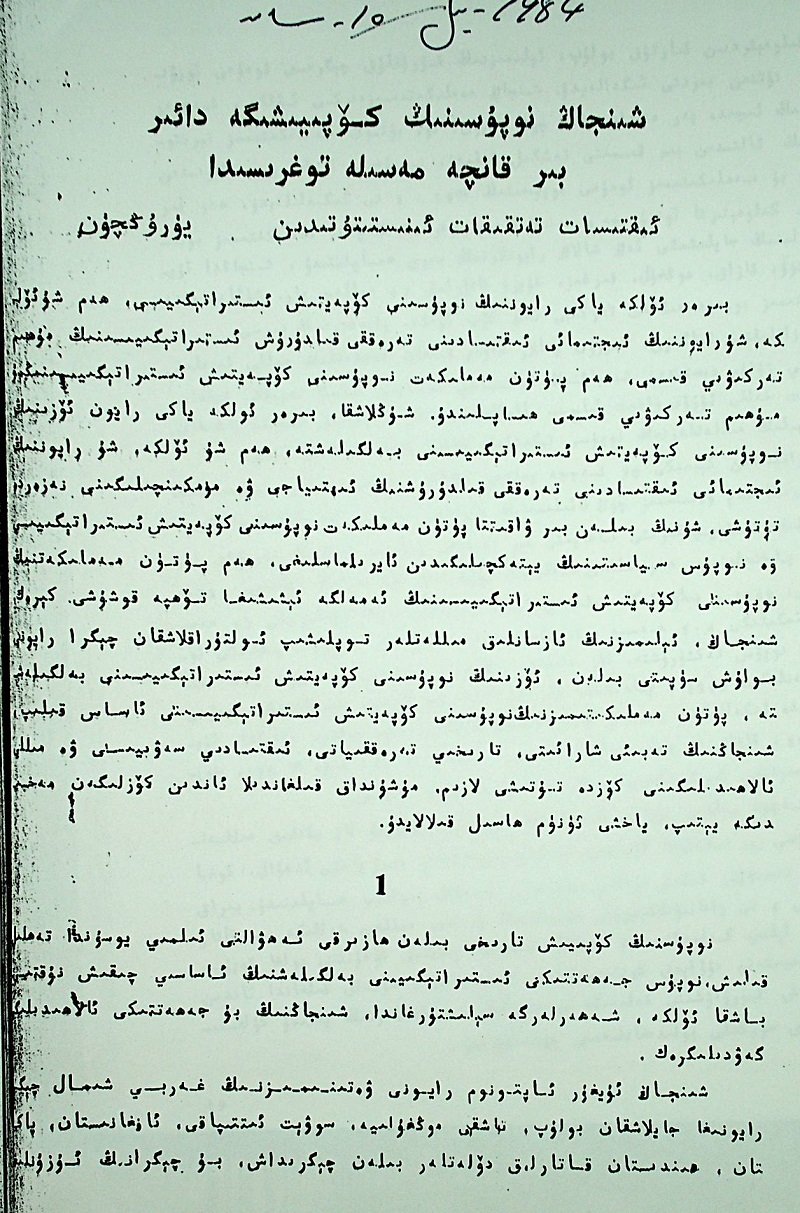 1984 - يىل - 10 - سان
شىنجاڭ نوپۇسىنىڭ كۆپىيىشىگە دائىر
بىر قانچە مەسىلە توغرىسىدا
ئىقتىسات تەتقىقات ئىنىستىتۇتىدىن يۈرۈڭچۈن
بىرەر ئۆلكە ياكى رايوننىڭ نوپۇسىنى كۆپەيتىش ئىستىراتېگىيىسى، ھەم شۇ ئۆلـ
كە، شۇ رايوننىڭ ئىجتىمائى ئىقتىسادىنى تەرەققى قىلدۇرۇش ئىستىراتېگىيىسىنىڭ مۇھىم
تەركىۋىي قىسمى، ھەم پۈتۈن مەملىكەت نوپۇسىنى كۆپەيتىش ئىستىراتېگىيىسىنىڭمۇ
مۇھىم تەركىۋىي قىسمى ھىساپلىنىدۇ. شۇڭلاشقا، بىرەر ئولكە ياكى رايون ئۆزىنىڭ
نوپۇسىنى كۆپەيتىش ئىستىراتېگىيىسىنى بەلگىلەشتە، ھەم شۇ ئۆلكە، شۇ رايوننىڭ
ئىجتىمائى ئىقتىسادىنى تەرەققى قىلدۇرۇشنىڭ ئىھتىياجى ۋە مۇمكىنچىلىگىنى نەزەردە
تۇتۇشى، شۇنىڭ بىلەن بىر ۋاقىتتا پۈتۈن مەملىكەت نوپۇسىنى كۆپەيتىش ئىستىراتېگىيىسى
ۋە نوپۇس سىياسىتىنىڭ يېتەكچىلىگىدىن ئايرىلماسلىغى، ھەم پۈتۈن مەملىكەتنىڭ
نوپۇسىنى كۆپەيتىش ئىستىراتېگىيىسىنىڭ ئەمەلگە ئېشىشىغا تۆھپە قوشۇشى كېرەك.
شىنجاڭ، ئېلىمىزنىڭ ئازسانلىق مىللەتلەر توپلىشىپ ئولتۇراقلاشقان چېگرا رايونى
بولۇش سۈپىتى بىلەن، ئۆزىنىڭ نوپۇسىنى كۆپەيتىش ئىستىراتېگىيىسىنى بەلگىلەشـ
تە، پۈتۈن مەملىكىتىمىزنىڭ نوپۇسىنى كۆپەيتىش ئىستىراتېگىيىسىنى ئاساس قىلىپ،
شىنجاڭنىڭ تەبىئى شارائىتى، تارىخىي تەرەققىياتى، ئىقتىسادىي سەۋىيىسى ۋە مىللى
ئالاھىدىلىگىنى كۆزدە تۇتىشى لازىم. مۇشۇنداق قىلغاندىلا ئاندىن كۆزلىگەن مەخسە
دىگە يېتىپ، ياخشى ئۈنۈم ھاسىل قىلالايدۇ.
1
نوپۇسنىڭ كۆپىيىش تارىخى بىلەن ھازىرقى ئەھۋالىنى ئىلمىي يوسۇندا تەھلىل
قىلىش، نوپۇس جەھەتتىكى ئىستىراتېگىيىنى بەلگىلەشنىڭ ئاساسىي چىقىش نۇقتىسى
باشقا ئۆلكە، شەھەرلەرگە سېلىشتۇرغاندا، شىنجاڭنىڭ بۇ جەھەتتىكى ئالاھىدىلىگى
گەۋدىلىكرەك.
شىنجاڭ ئۇيغۇر ئاپتونوم رايونى ۋەتىنىمىزنىڭ غەربىي شىمال چېگرا
رايونىغا جايلاشقان بولۇپ، تاشقى موڭغۇلىيە، سوۋېت ئىتتىپاقى، ئافغانىستان، پاكىـ
تان، ھىندىستان قاتارلىق دۆلەتلەر بىلەن چېگرىداش، بۇ چېگرانىڭ ئۇزۇنلىغى